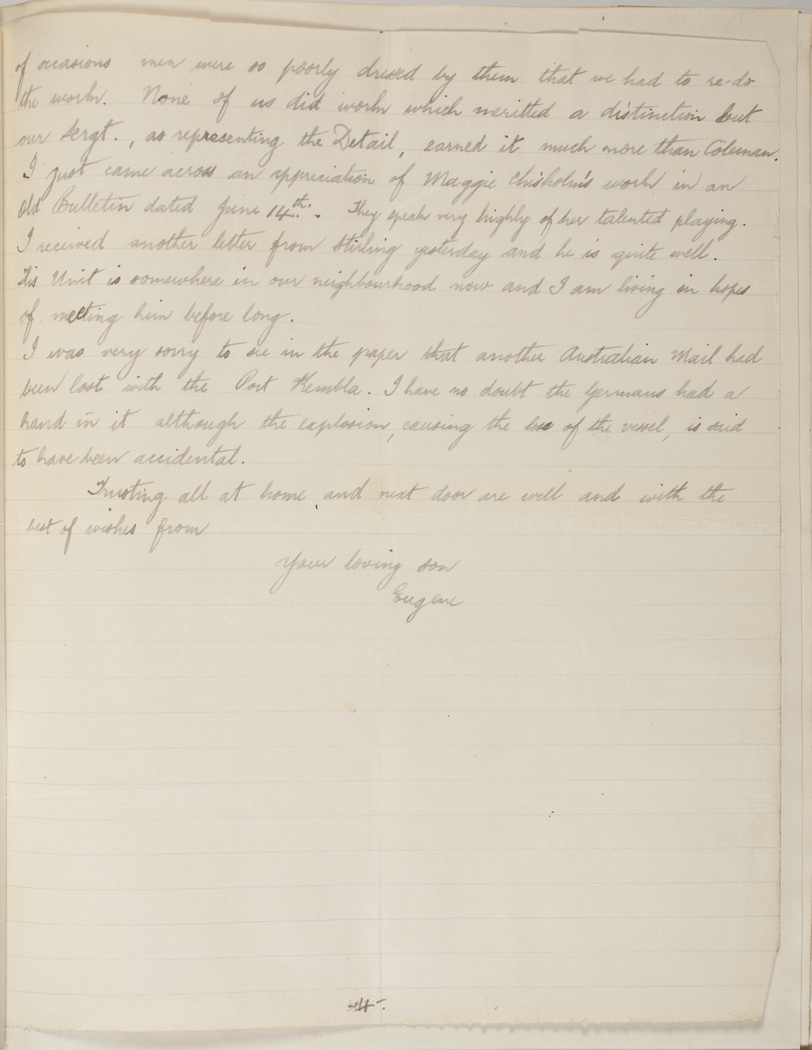 of occasions men were so poorly dressed by them that we had to re-do
the work. None of us did work which meritted a distinction but
our Sergt., as representing the Detail, earned it much more than Coleman.
I just came across an appreciation of Maggie Chisholm's work in an
old Bulletin dated June 14th. They speak very highly of her talented playing.
I received another letter from Stirling yesterday and he is quite well.
His Unit is somewhere in our neighbourhood now and I am living in hopes
of meeting him before long.
I was very sorry to see in the paper that another Australian Mail had
been lost with the Port Kembla. I have no doubt the Germans had a
hand in it although the explosion, causing the loss of the vessel, is said
to have been accidental.
Trusting all at home and next door are well and with the
best of wishes from
Your loving son
Eugene
-4-